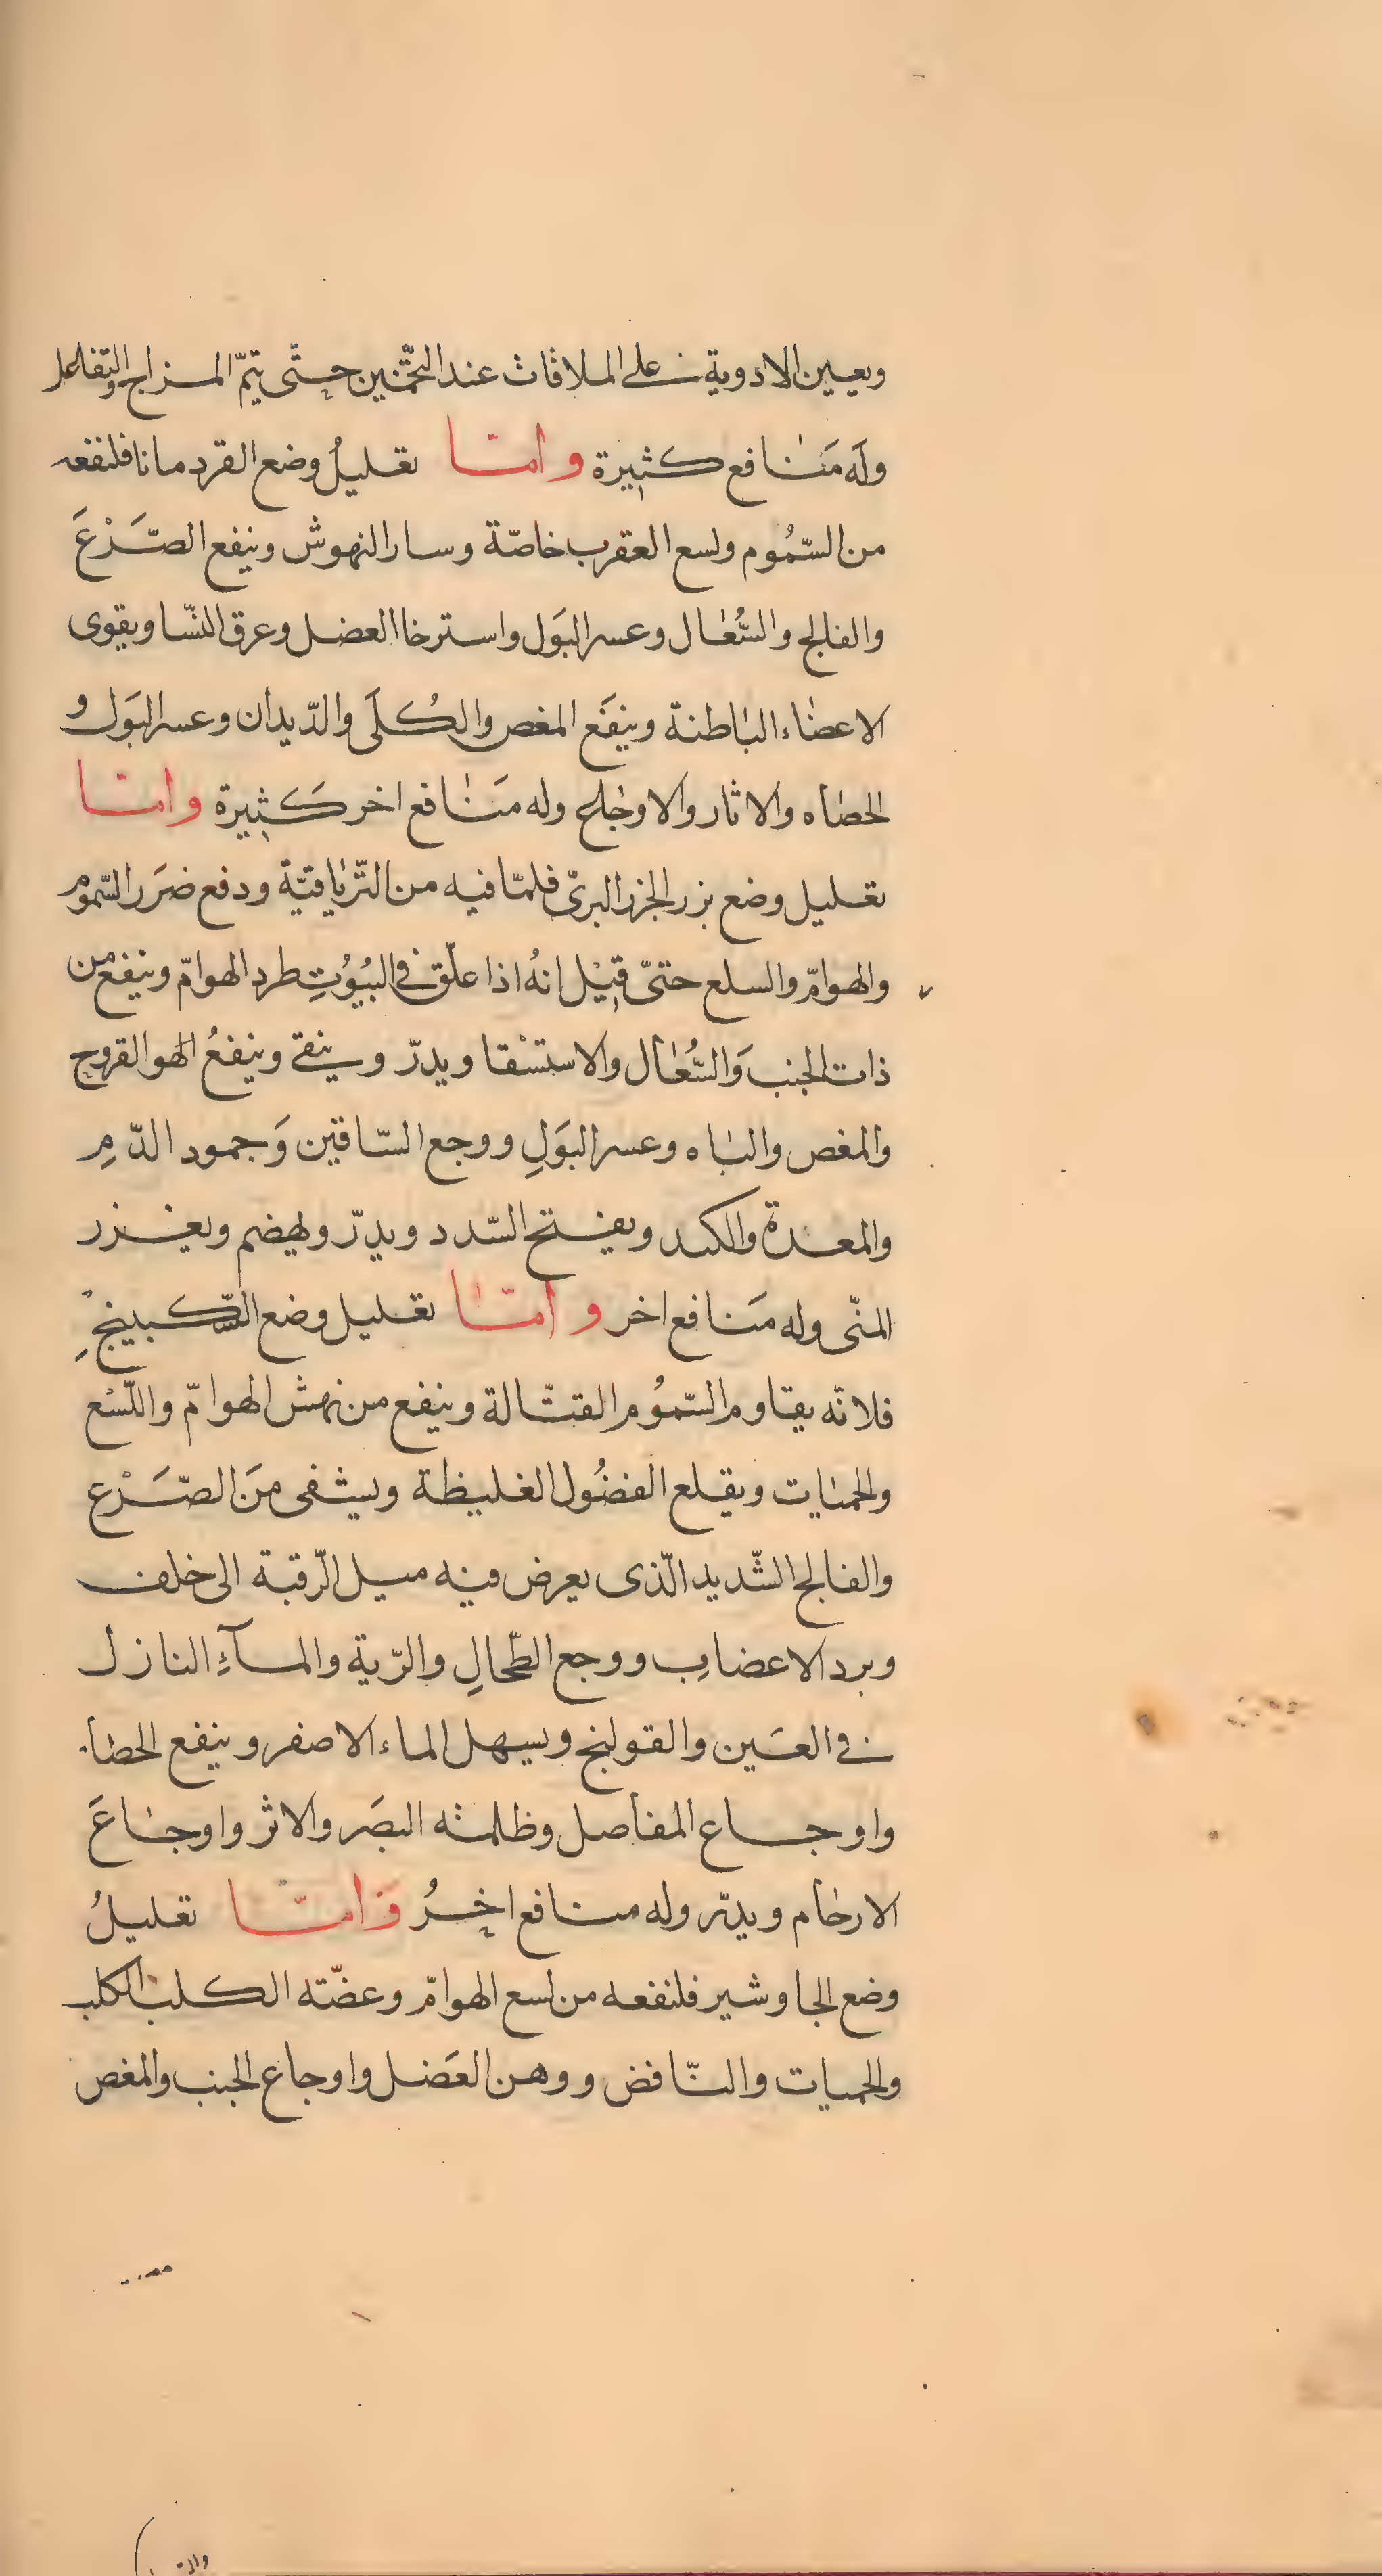 ويعين الادوية على الملاقات عند التخمين حتّى يتمّ المزاج والتفاعل
وله مَنافع كثيرة وامّا تعليلُ وضع القردمانا فلنفعه
من السّمُوم ولسع العقرب خاصّة وسار النهوش وينفع الصَّرْعَ
والفالج والسُّعال وعسر البَول واسترخا العضل وعرق النّسا ويقوى
الاعضاء الباطنة وينفَع المغص والكُلَى والدّيدان وعسر البَول و
الحصاه والاثار والاوجاع وله مَنافع اخر كَثيرة وامّا
تعليل وضع بزر الجزر البرىّ فلمّا فيه من التّرياقيّة ودفع ضرَر السّموم
والهوامّ والسلع حتىّ قيْل انهُ اذا علّق في البُيُوْتِ طرد الهوامّ وينفع من
ذات الجنب وَالسُّعال والاستسْقا ويدرّ وينقى وينفعُ الهو القروح
والمغص والباه وعسر البوَلِ ووجع السّاقين وَجمود الدّمِ
والمعدة والكبد ويفتح السّدد ويدرّ ويهضم ويغزر
المنّى وله مَنافع اخر وامّا تعليل وضع السّكبينجِ
فلانّه يقاوم السّمُوم القتّالة وينفع من نهش الهوامّ واللّسْع
والحميات ويقلع الفضُول الغليظة ويشفى مَن الصَّرْع
والفالج الشّديد الّذى يعرض فيه ميل الرّقبة الى خلف
وبرد الاعضابِ ووجع الطّحالِ والرّية والمآءِ النازل
في العَين والقولنج ويسهل الماء الاصفر وينفع الحصاة
واوجاع المفاصل وظلمة البصَر والاثر واوجاعَ
الارحام ويدرّ وله منافع اخرُ وَامّا تعليلُ
وضع الجاوشير فلنفعه من لسع الهوامّ وعضّته الكلب الكلب
والحميات والنّافض ووهن العَضل واوجاع الجنب والمغص